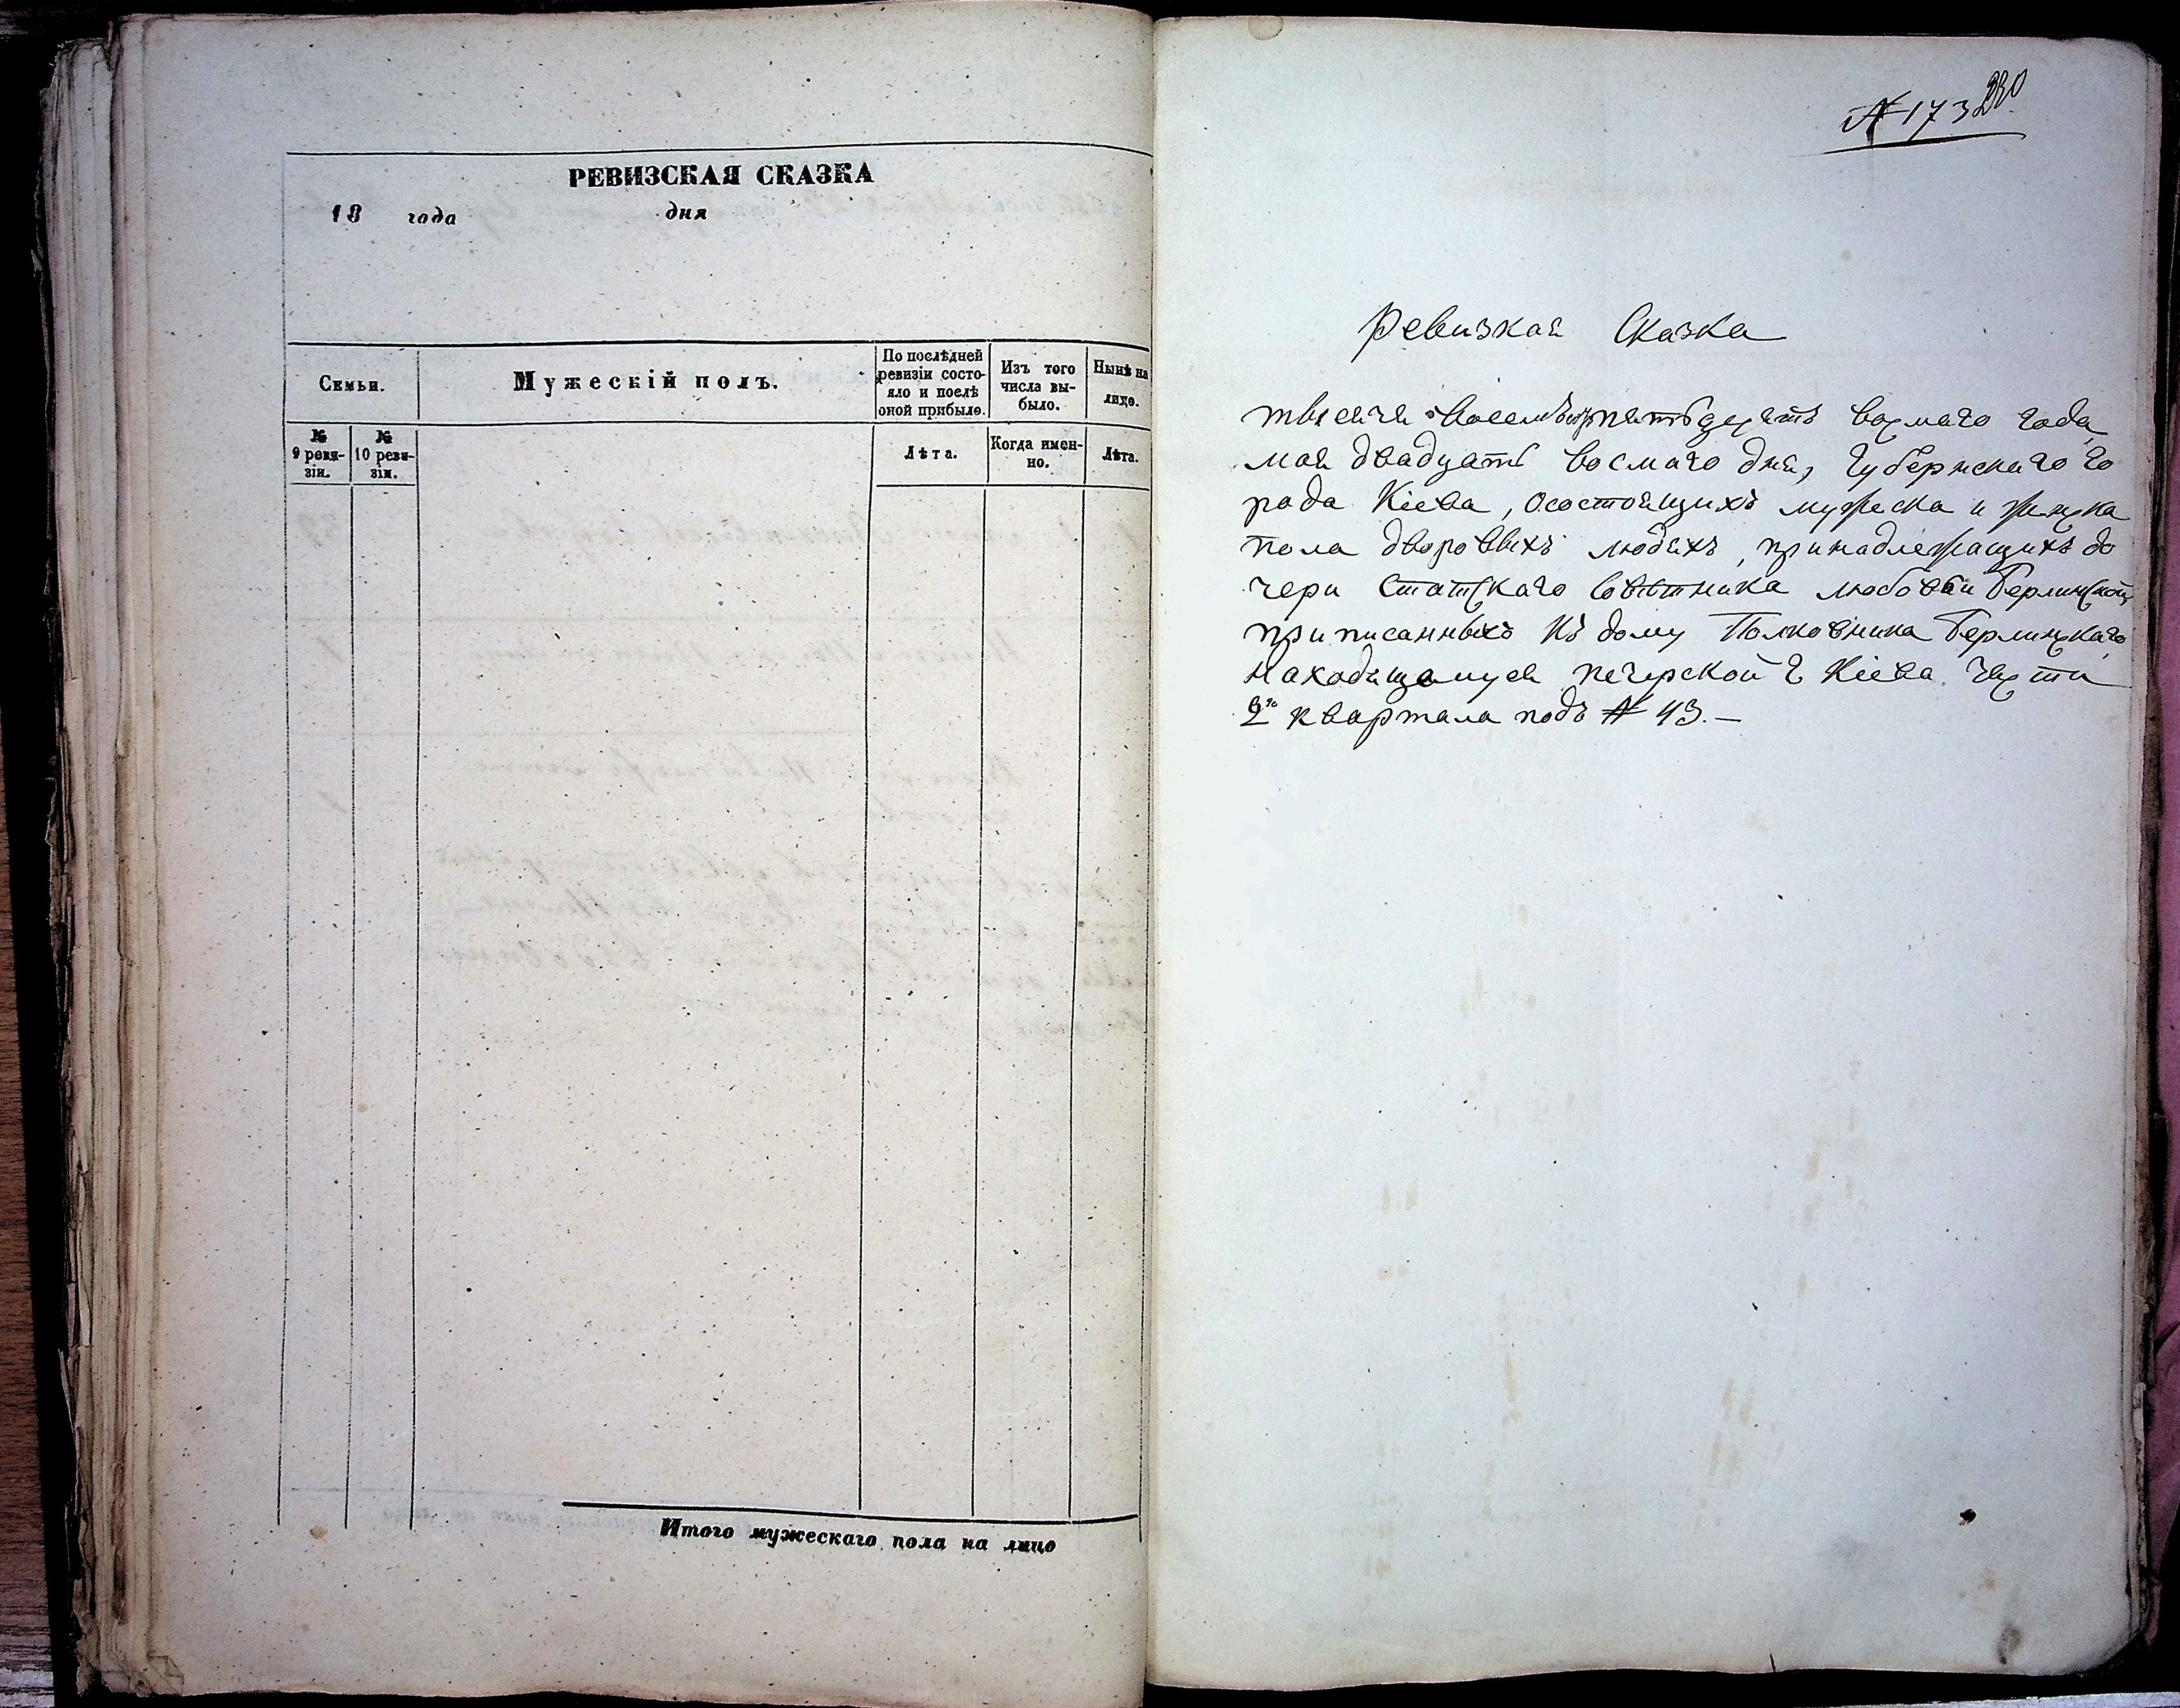 РЕВИЗСКАЯ СКАЗКА
18 года дня
Семьи.
Мужескій полъ.
По послѣдней
ревизіи состо-
яло и послѣ
оной прибыло.
Изъ того
числа вы-
было.
Нынѣ на
лицо.
№
9 реви-
зіи.
№
10 реви-
зіи.
Лѣта.
Когда имен-
но.
Лѣта.
Итого мужескаго пола на лицо
№ 173
230
Ревизкая Сказка
тысяча восемьсотъ пятьдесятъ восмаго года,
мая двадцать восмаго дня, Губернскаго го
рода Кіева, осостоящихъ мужеска и женска
пола дворовыхъ людяхъ, принадлежащихъ до
чери Статскаго Совѣтника Любови Берлинской,
приписанныхъ къ дому Полковника Берлинскаго,
находящемуся печерской г Кіева части
2го квартала подъ № 43.—